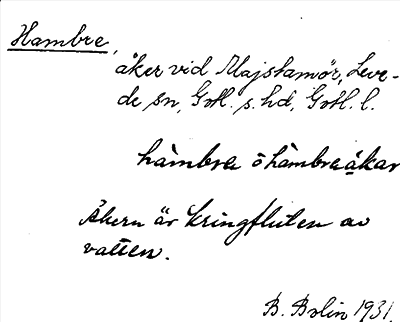 Hambre,
åker vid Majstamör, Leve-
de sn, Gotl. s. hd, Gotl. l.
hàmbra ô hàmbraåkar
Åkern är kringfluten av
vatten.
B. Bolin 1931.